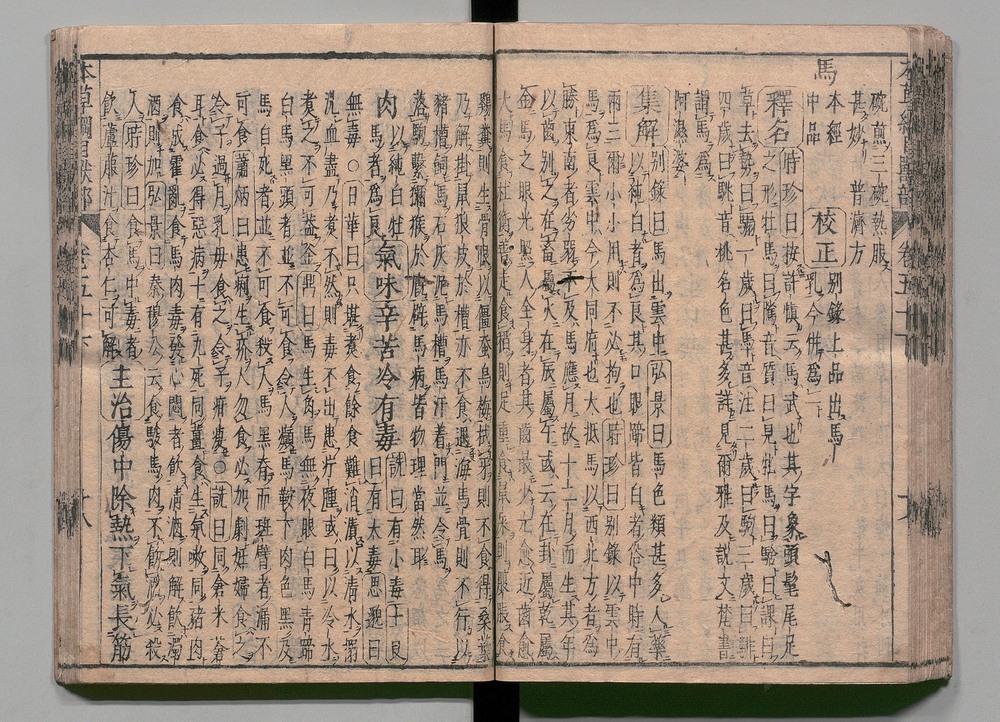 碗煎三碗熱服
甚妙 普濟方
馬 本經中品 校正 別錄上品出馬乳今併為一
釋名 時珍曰按許慎云馬武也其字象頭髦尾足
之形牡馬曰騭音質曰兒牝馬曰騇曰課曰
草去勢曰騸一歲曰馵音注二歲曰駒三歲曰騑
四歲曰駣音桃名色甚多詳見爾雅及說文梵書
謂馬為
阿濕婆
集解 別錄曰馬出雲中弘景曰馬色類甚多入藥
以純白者為良其口眼蹄皆白者俗中時有
兩三爾小小用則不必拘也時珍曰別錄以雲中
馬為良雲中今大同府也大抵馬以西北方者為
勝東南者劣弱不及馬應月故十二月而生其年
以齒別之在畜屬火在辰屬午或云在卦屬乾屬
金馬之眼光照人全身者其齒最少光愈近齒愈
大馬食杜衡善走食稻則足重食鼠屎則腹脹食
雞糞則生骨眼以僵蠶烏梅拭牙則不食得桑葉
乃解掛鼠狼皮於槽亦不食遇海馬骨則不行以
猪槽飼馬石灰泥馬槽馬汗着門並令馬
落駒繫獼猴於廐辟馬病皆物理當然耳
肉 以純白牡馬者為良 氣味辛苦冷有毒 詵曰有小毒士良曰有大毒思邈曰
無毒○日華曰只堪煮食餘食難消漬以清水搦
洗血盡乃煮不然則毒不出患疔腫或曰以冷水
煮之不可蓋釜鼎曰馬生角馬無夜眼白馬青蹄
白馬黑頭者並不可食令人癲馬鞍下肉色黑及
馬自死者並不可食殺人馬黑脊而斑臂者漏不
可食蕭炳曰患痢生疥人勿食必加劇妊婦食之
令子過月乳母食之令子疳瘦○詵曰同倉米蒼
耳食必得惡病十有九死同薑食生氣嗽同猪肉
食成霍亂食馬肉毒發心悶者飲清酒則解飲濁
酒則加弘景曰秦穆公云食駿馬肉不飲酒必殺
人時珍曰食馬肉中毒者
飲蘆菔汁食杏仁可解 主治傷中除熱下氣長筋
本草綱目獸部 卷五十下 十八